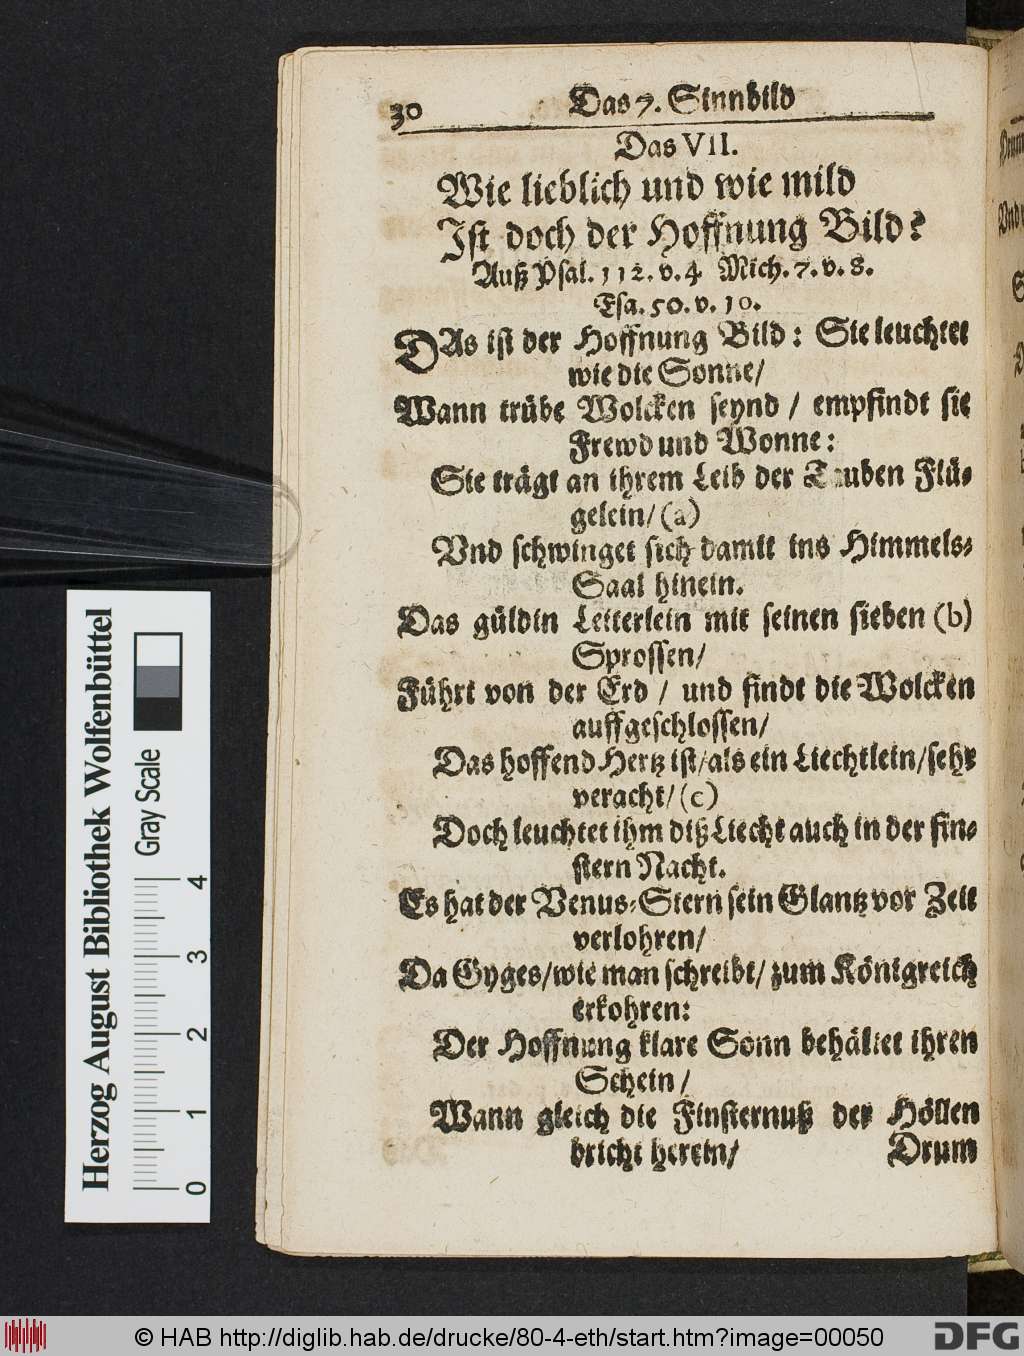 30 Das 7. Sinnbild
Das VII.
Wie lieblich und wie mild
Ist doch der Hoffnung Bild?
Auß Psal. 112. v. 4 Mich. 7. v. 8.
Esa. 50. v. 10.
DAs ist der Hoffnung Bild: Sie leuchtet
wie die Sonne/
Wann trübe Wolcken seynd / empfindt sie
Frewd und Wonne:
Sie trägt an ihrem Leib der Tauben Flü-
gelein/ (a)
Vnd schwinget sich damit ins Himmels-
Saal hinein.
Das güldin Leiterlein mit seinen sieben (b)
Sprossen/
Führt von der Erd / und findt die Wolcken
auffgeschlossen/
Das hoffend Hertz ist/als ein Liechtlein/sehr
veracht/ (c)
Doch leuchtet ihm diß Liecht auch in der fin-
stern Nacht.
Es hat der Venus-Stern sein Glantz vor Zeit
verlohren/
Da Gyges/wie man schreibt/ zum Königreich
erkohren:
Der Hoffnung klare Sonn behältet ihren
Schein /
Wann gleich die Finsternuß der Höllen
bricht herein/ Drum
Herzog August Bibliothek Wolfenbüttel
Gray Scale
0 1 2 3 4
© HAB http://diglib.hab.de/drucke/80-4-eth/start.htm?image=00050
DFG